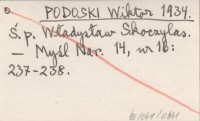 PODOSKI Wiktor 1934.
Ś.p. Władysław Skoczylas.
— Myśl Nar. 14, nr 18:
237-238.